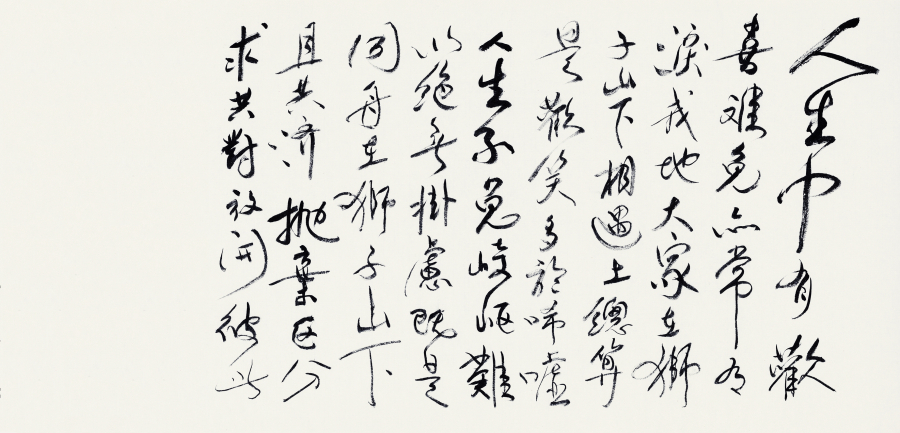 人生中有歡
喜難免亦常有
淚我地大家在獅
子山下相遇上總算
是歡笑多於唏噓
人生不免崎岖難
以絶無掛慮既是
同舟在獅子山下
且共济拋棄区分
求共對放開彼此